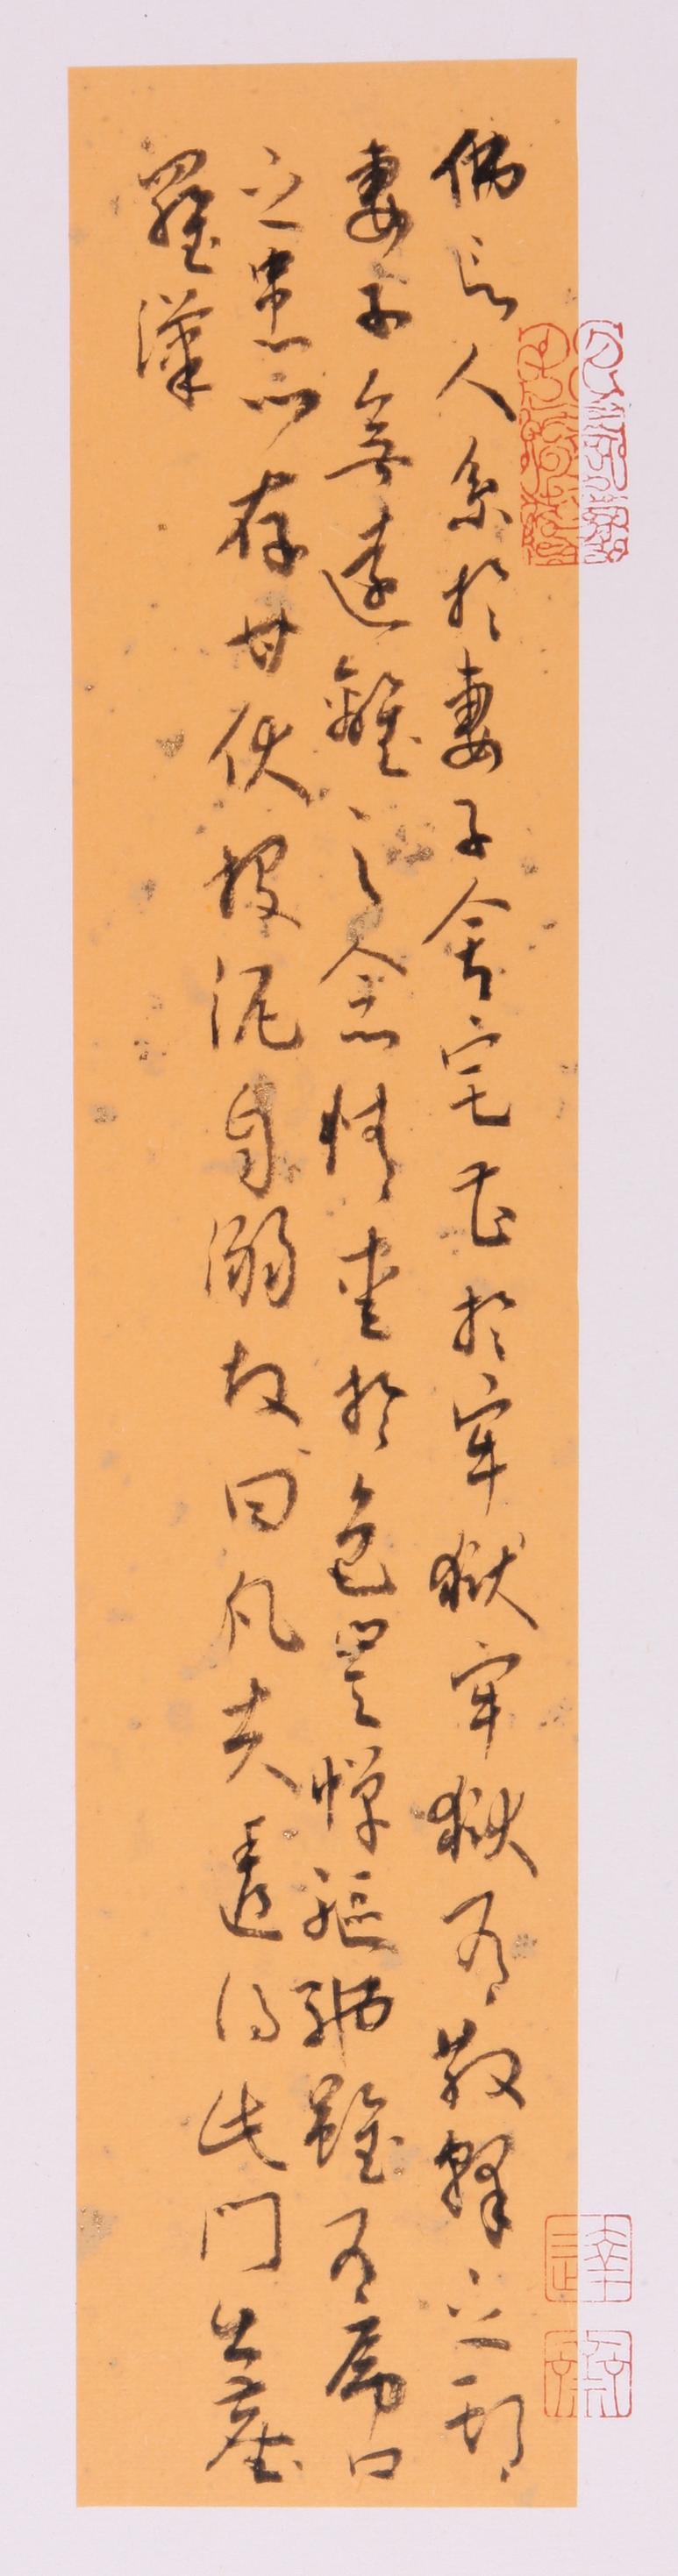 佛言人系於妻子舍宅甚於牢獄牢獄有散釋之期
妻子無遠離之念情愛於色豈憚驅馳雖有虎口
之患心存甘伏投泥自溺故曰凡夫透得此門出塵
羅漢